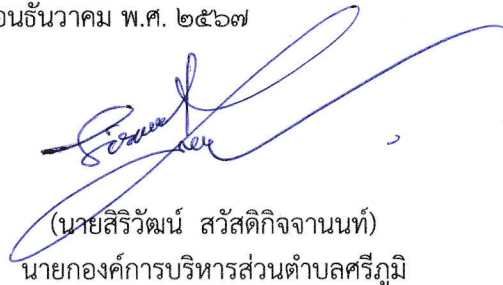 อนธันวาคม พ.ศ. ๒๕๖๗
(นายสิริวัฒน์ สวัสดิกิจจานนท์)
นายกองค์การบริหารส่วนตำบลศรีภูมิ